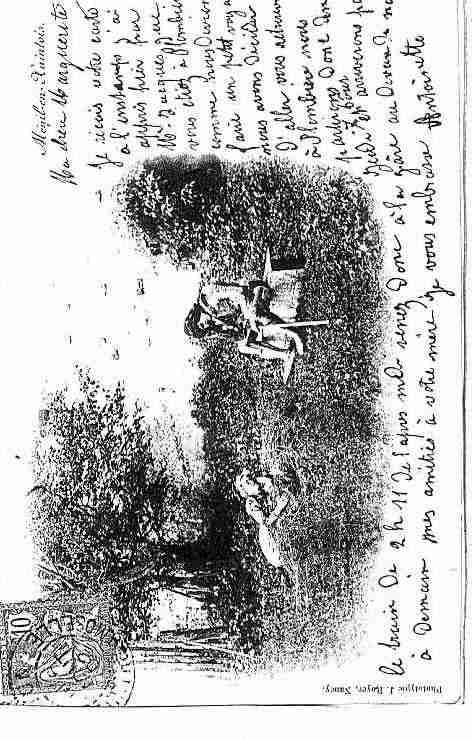 Mesnil-en-Xaintois.
Ma chère Marguerite
Je reçois votre carte
à l'instant j'ai
appris hier par
Mr Jacques que
vous étiez à Plombières
comme nous devions
faire un petit voya
nous avons décidé
d'aller vous retrouv
à Plombières nous
partirons donc dem
jeudi et arriverons pa
le train de 2 h 11 de l'après midi venez donc à la gare au devant de no
à Demain mes amitiés à votre mère je vous embrasse Antoinette
10
Phototypie J. Royer, Nancy.